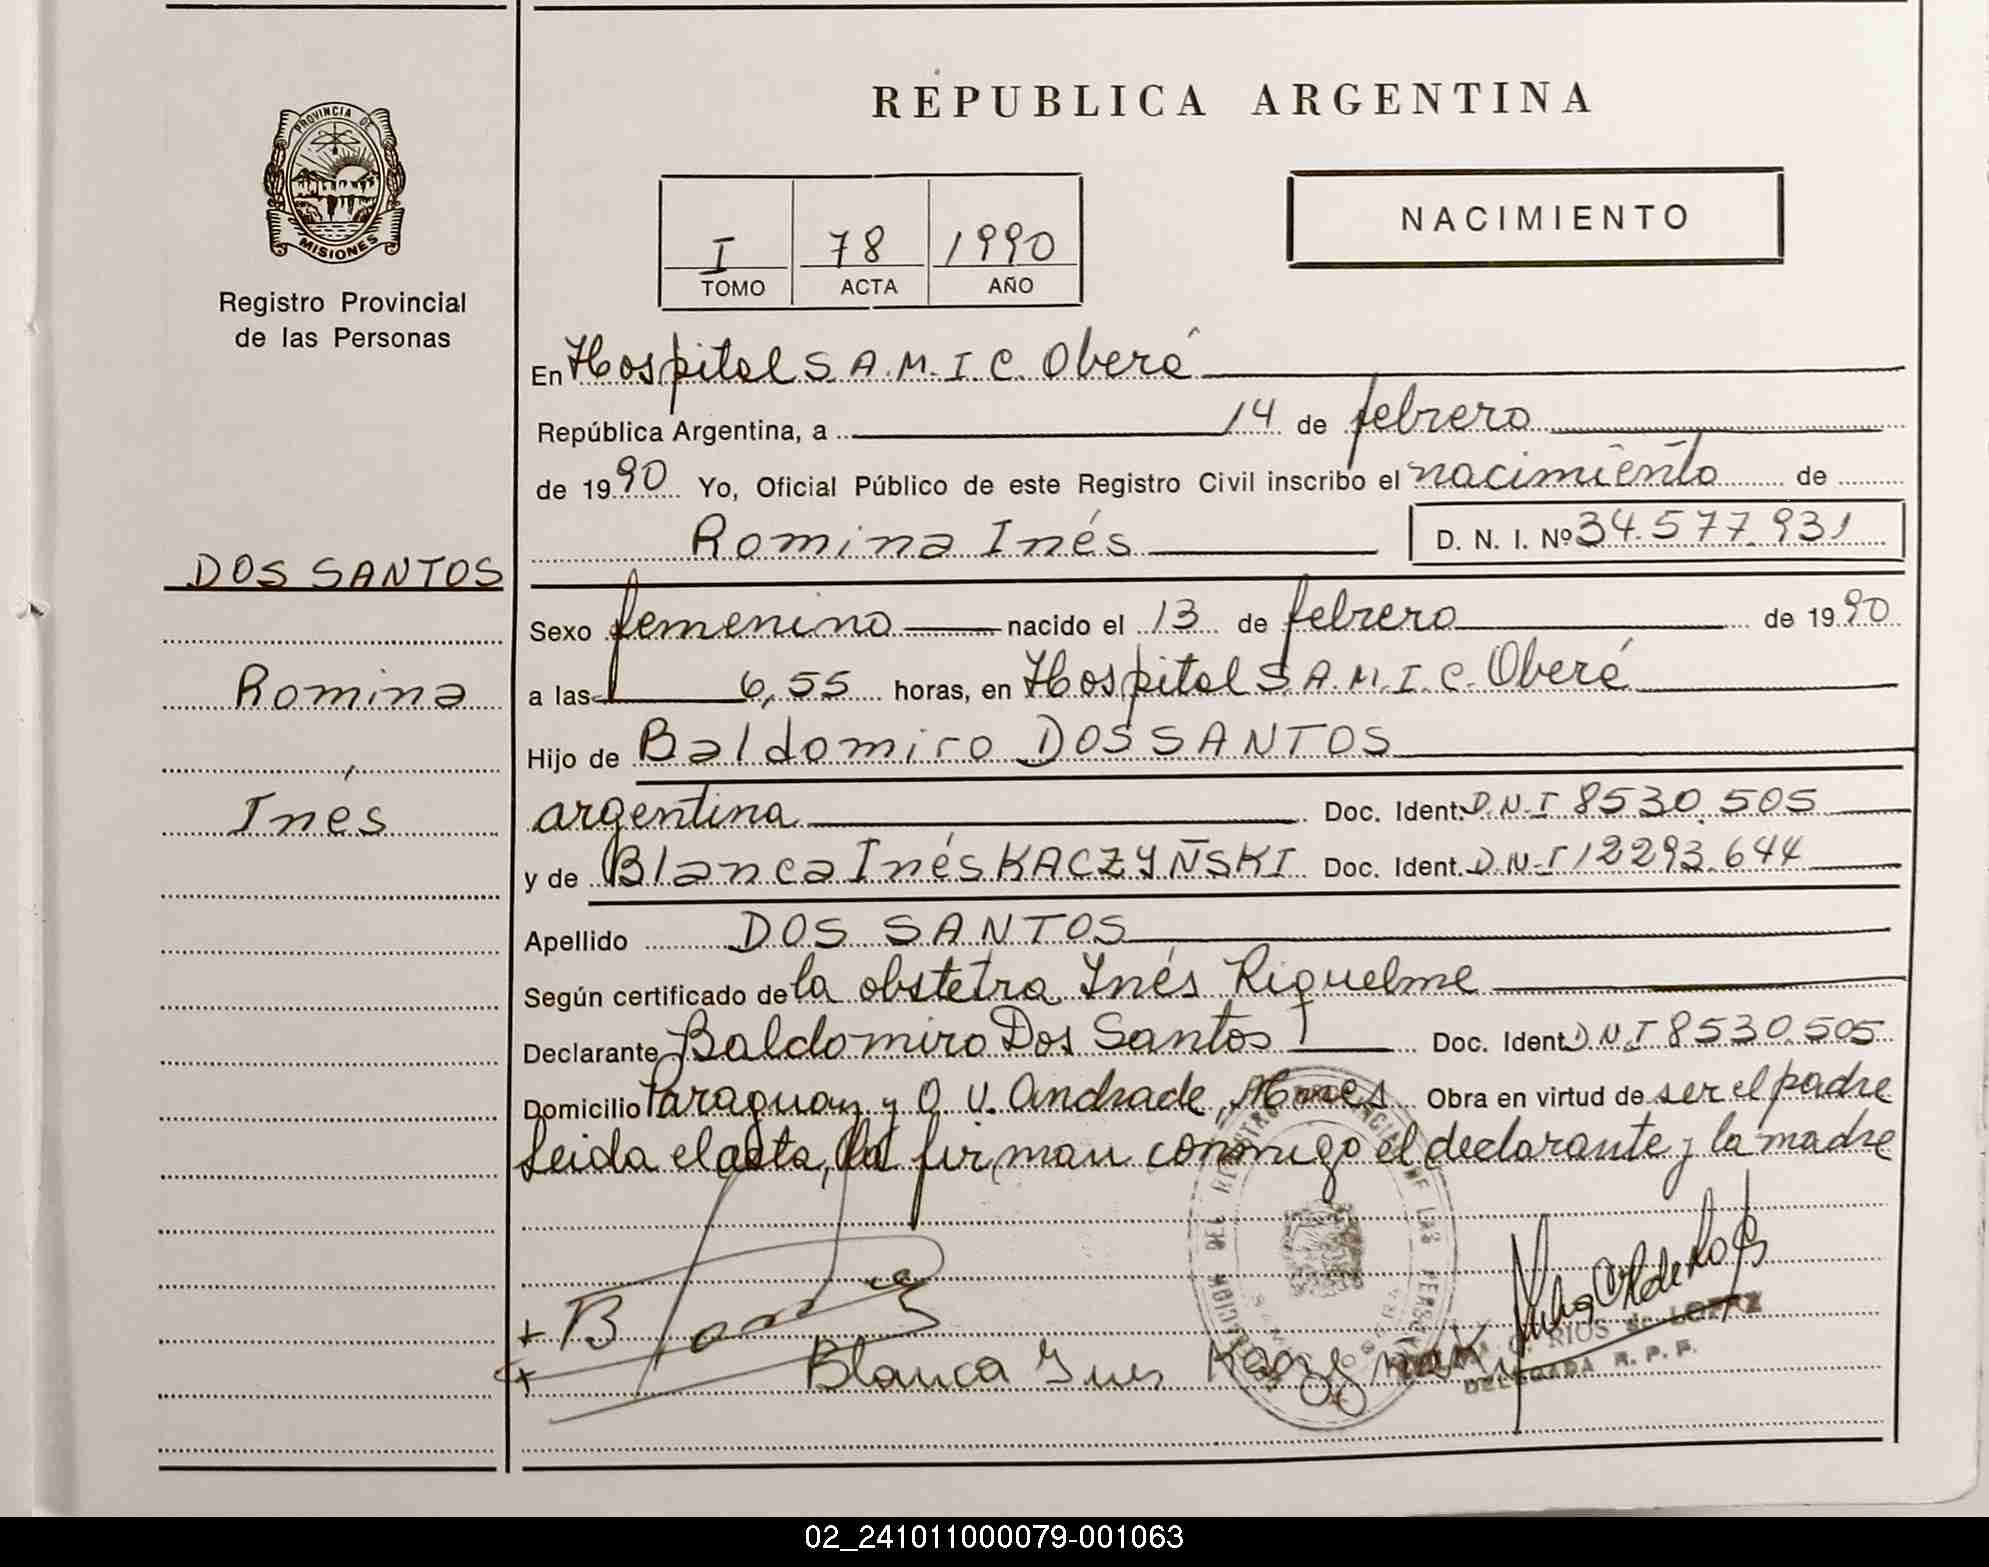 REPUBLICA ARGENTINA
PROVINCIA DE
MISIONES
Registro Provincial
de las Personas
I 78 1990
TOMO ACTA AÑO
NACIMIENTO
En Hospital S.A.M.I.C. Oberá
República Argentina, a 14 de febrero
de 1990 Yo, Oficial Público de este Registro Civil inscribo el nacimiento de
Romina Inés D. N. I. Nº 34.577.931
DOS SANTOS
Romina
Inés
Sexo femenino nacido el 13 de febrero de 1990
a las 6,55 horas, en Hospital S.A.M.I.C. Oberá
Hijo de Baldomiro DOS SANTOS
argentina Doc. Ident. D.N.I 8530.505
y de Blanca Inés KACZYÑSKI Doc. Ident. D.N.I 12293.644
Apellido DOS SANTOS
Según certificado de la obstetra Inés Riquelme
Declarante Baldomiro Dos Santos Doc. Ident. D.N.I 8530.505
Domicilio Paraguay y O. V. Andrade, Obra en virtud de ser el padre
Leida el acta, la firman conmigo el declarante y la madre
Blanca Ines
RIOS de LOPEZ
DELEGADA R. P. P.
02_241011000079-001063